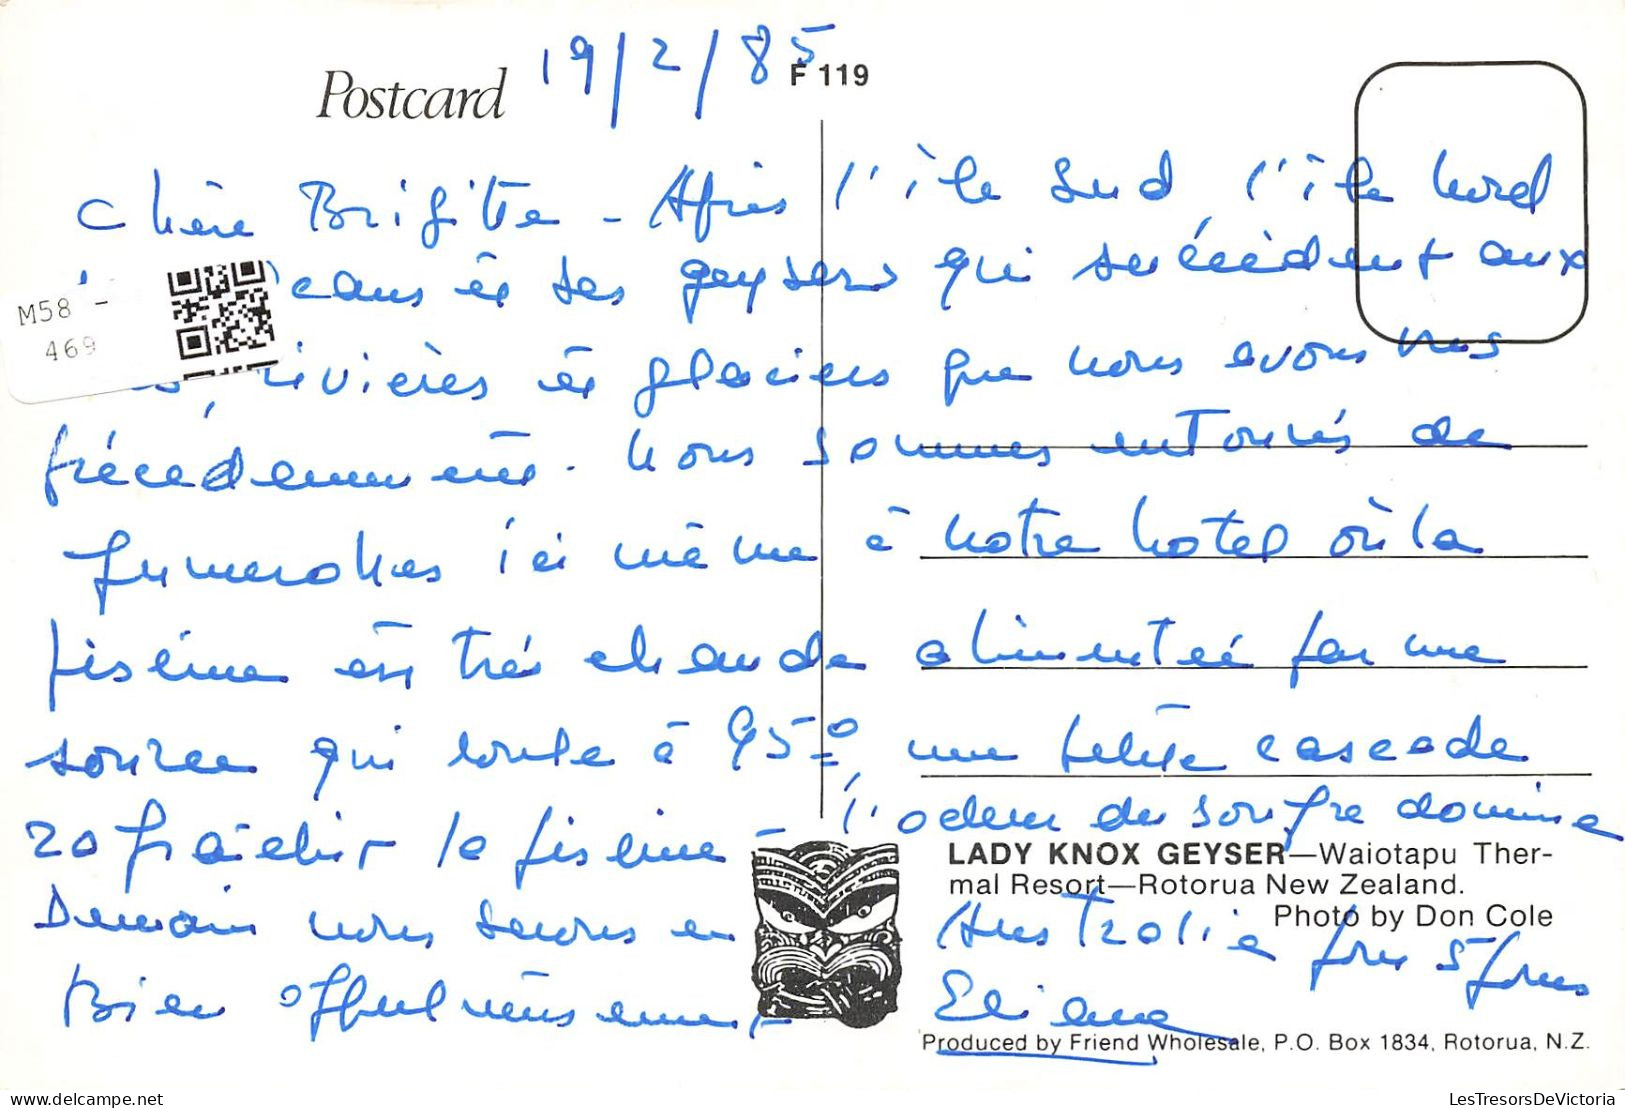 19/2/85
Postcard
F 119
Chère Brigitte - Après l'île Sud, l'île Nord
et ses geysers qui succèdent aux
M58 -
469
rivières et glaciers que nous avons vus
précédemment. Nous sommes entourés de
fumerolles ici même à notre hotel où la
piscine est très chaude alimentée par une
source qui coule à 95°, une petite cascade
rafraîchit la piscine - l'odeur de soufre domine
LADY KNOX GEYSER—Waiotapu Ther-
mal Resort—Rotorua New Zealand.
Photo by Don Cole
Demain nous serons en Australie pour 5 jours
Bien affectueusement, Eliane
Produced by Friend Wholesale, P.O. Box 1834, Rotorua, N.Z.
delcampe.net
LesTresorsDeVictoria